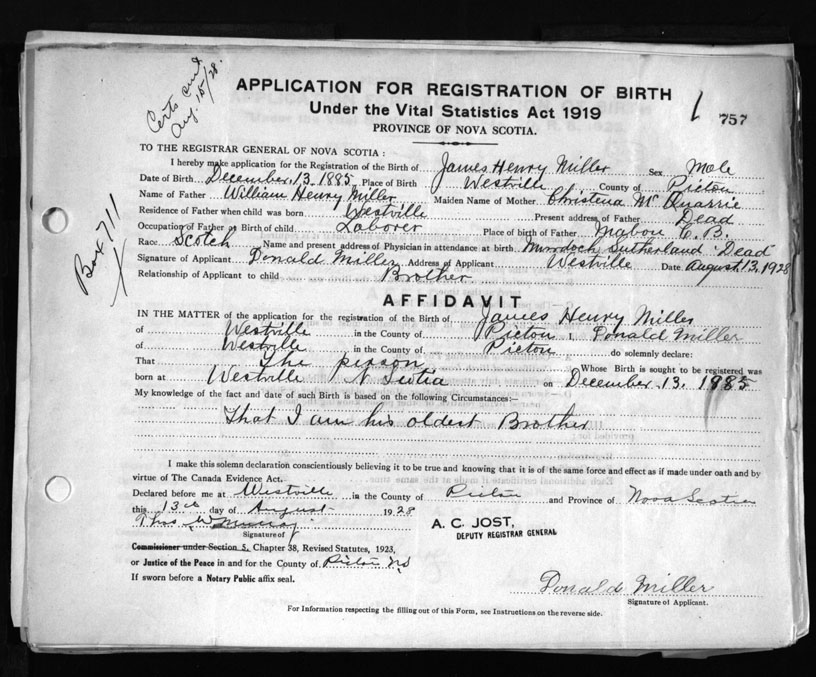 Certs sent
Aug. 15/28.
APPLICATION FOR REGISTRATION OF BIRTH
Under the Vital Statistics Act 1919
PROVINCE OF NOVA SCOTIA.
1 757
TO THE REGISTRAR GENERAL OF NOVA SCOTIA :
I hereby make application for the Registration of the Birth of James Henry Miller Sex Male
Date of Birth December, 13, 1885, Place of Birth Westville, County of Picton
Name of Father William Henry Miller Maiden Name of Mother Christena Mc Quarrie
Residence of Father when child was born Westville Present address of Father Dead
Occupation of Father at Birth of child Laborer Place of birth of Father Mabou C. B.
Race Scotch Name and present address of Physician in attendance at birth Murdoch Sutherland "Dead"
Signature of Applicant Donald Miller Address of Applicant Westville Date August, 13, 1928
Relationship of Applicant to child Brother
Box 711
AFFIDAVIT
IN THE MATTER of the application for the registration of the Birth of James Henry Miller
of Westville in the County of Picton I, Donald Miller
of Westville in the County of Picton do solemnly declare:
That The person Whose Birth is sought to be registered was
born at Westville N Scotia on December, 13, 1885
My knowledge of the fact and date of such Birth is based on the following Circumstances:—
That I am his oldest Brother
I make this solemn declaration conscientiously believing it to be true and knowing that it is of the same force and effect as if made under oath and by
virtue of The Canada Evidence Act.
Declared before me at Westville in the County of Picton and Province of Nova Scotia
this 13th day of August 1928
Thos W Murray
Signature of
A. C. JOST,
DEPUTY REGISTRAR GENERAL
Commissioner under Section 5, Chapter 38, Revised Statutes, 1923,
or Justice of the Peace in and for the County of Picton NS
If sworn before a Notary Public affix seal.
Donald Miller
Signature of Applicant.
For Information respecting the filling out of this Form, see Instructions on the reverse side.